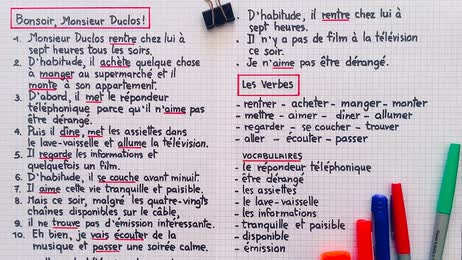 Bonsoir, Monsieur Duclos!
1. Monsieur Duclos rentre chez lui à
sept heures tous les soirs.
2. D'habitude, il achète quelque chose
à manger au supermarché et il
monte à son appartement.
3. D'abord, il met le répondeur
téléphonique parce qu'il n'aime pas
être dérangé.
4. Puis il dîne, met les assiettes dans
le lave-vaisselle et allume la télévision.
5. Il regarde les informations et
quelquefois un film.
6. D'habitude, il se couche avant minuit.
7. Il aime cette vie tranquille et paisible.
8. Mais ce soir, malgré les quatre-vingts
chaînes disponibles sur le câble,
9. il ne trouve pas d'émission intéressante.
10. Eh bien, je vais écouter de la
musique et passer une soirée calme.
• D'habitude, il rentre chez lui à
sept heures.
• Il n'y a pas de film à la télévision
ce soir.
• Je n'aime pas être dérangé.
Les Verbes
- rentrer - acheter - manger - monter
- mettre - aimer - dîner - allumer
- regarder - se coucher - trouver
- aller - écouter - passer
VOCABULAIRES
- le répondeur téléphonique
- être dérangé
- les assiettes
- le lave-vaisselle
- les informations
- tranquille et paisible
- disponible
- émission